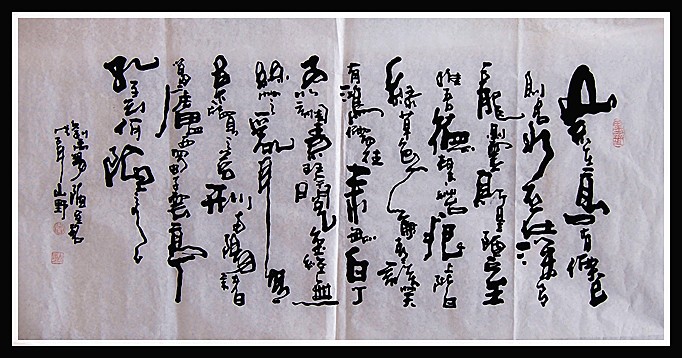 山不在高有僊
則名水不在深有
龍則靈斯是陋室
惟吾德馨苔痕上階
緑草色入簾青談笑
有鴻儒往来無白丁
可以調素琴閲金經無
絲竹之亂耳無
案牘之勞形南陽諸
葛廬西蜀子雲亭
孔子云何陋之有
劉禹錫陋室銘
山野